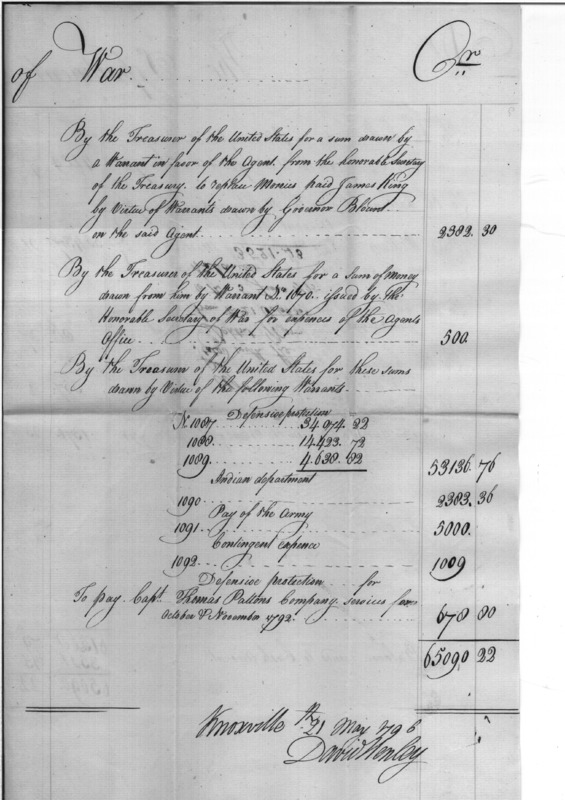 of War. Cr.
By the Treasurer of the United States for a sum drawn by
a Warrant in favor of the Agent from the honorable Secretary
of the Treasury to replace Monies paid James King
by Virtue of Warrants drawn by Governor Blount
on the said Agent 2382. 30
By the Treasurer of the United States for a Sum of Money
drawn from him by Warrant No. 1070. issued by the
Honorable Secretary of War for expences of the Agents
Office 500.
By the Treasurer of the United States for these sums
drawn by Virtue of the following Warrants
Defensive protection
No 1087 34.074. 22
1088 14.423. 72
1089 4.638. 82 53136. 76
Indian department
1090 2383. 36
Pay of the Army
1091 5000.
Contingent expence
1092 1009
Defensive protection for
To pay Capt. Thomas Pattons Company services from
October & November 1792 678 80
65090. 22
Knoxville 21 May 1796
David Henley